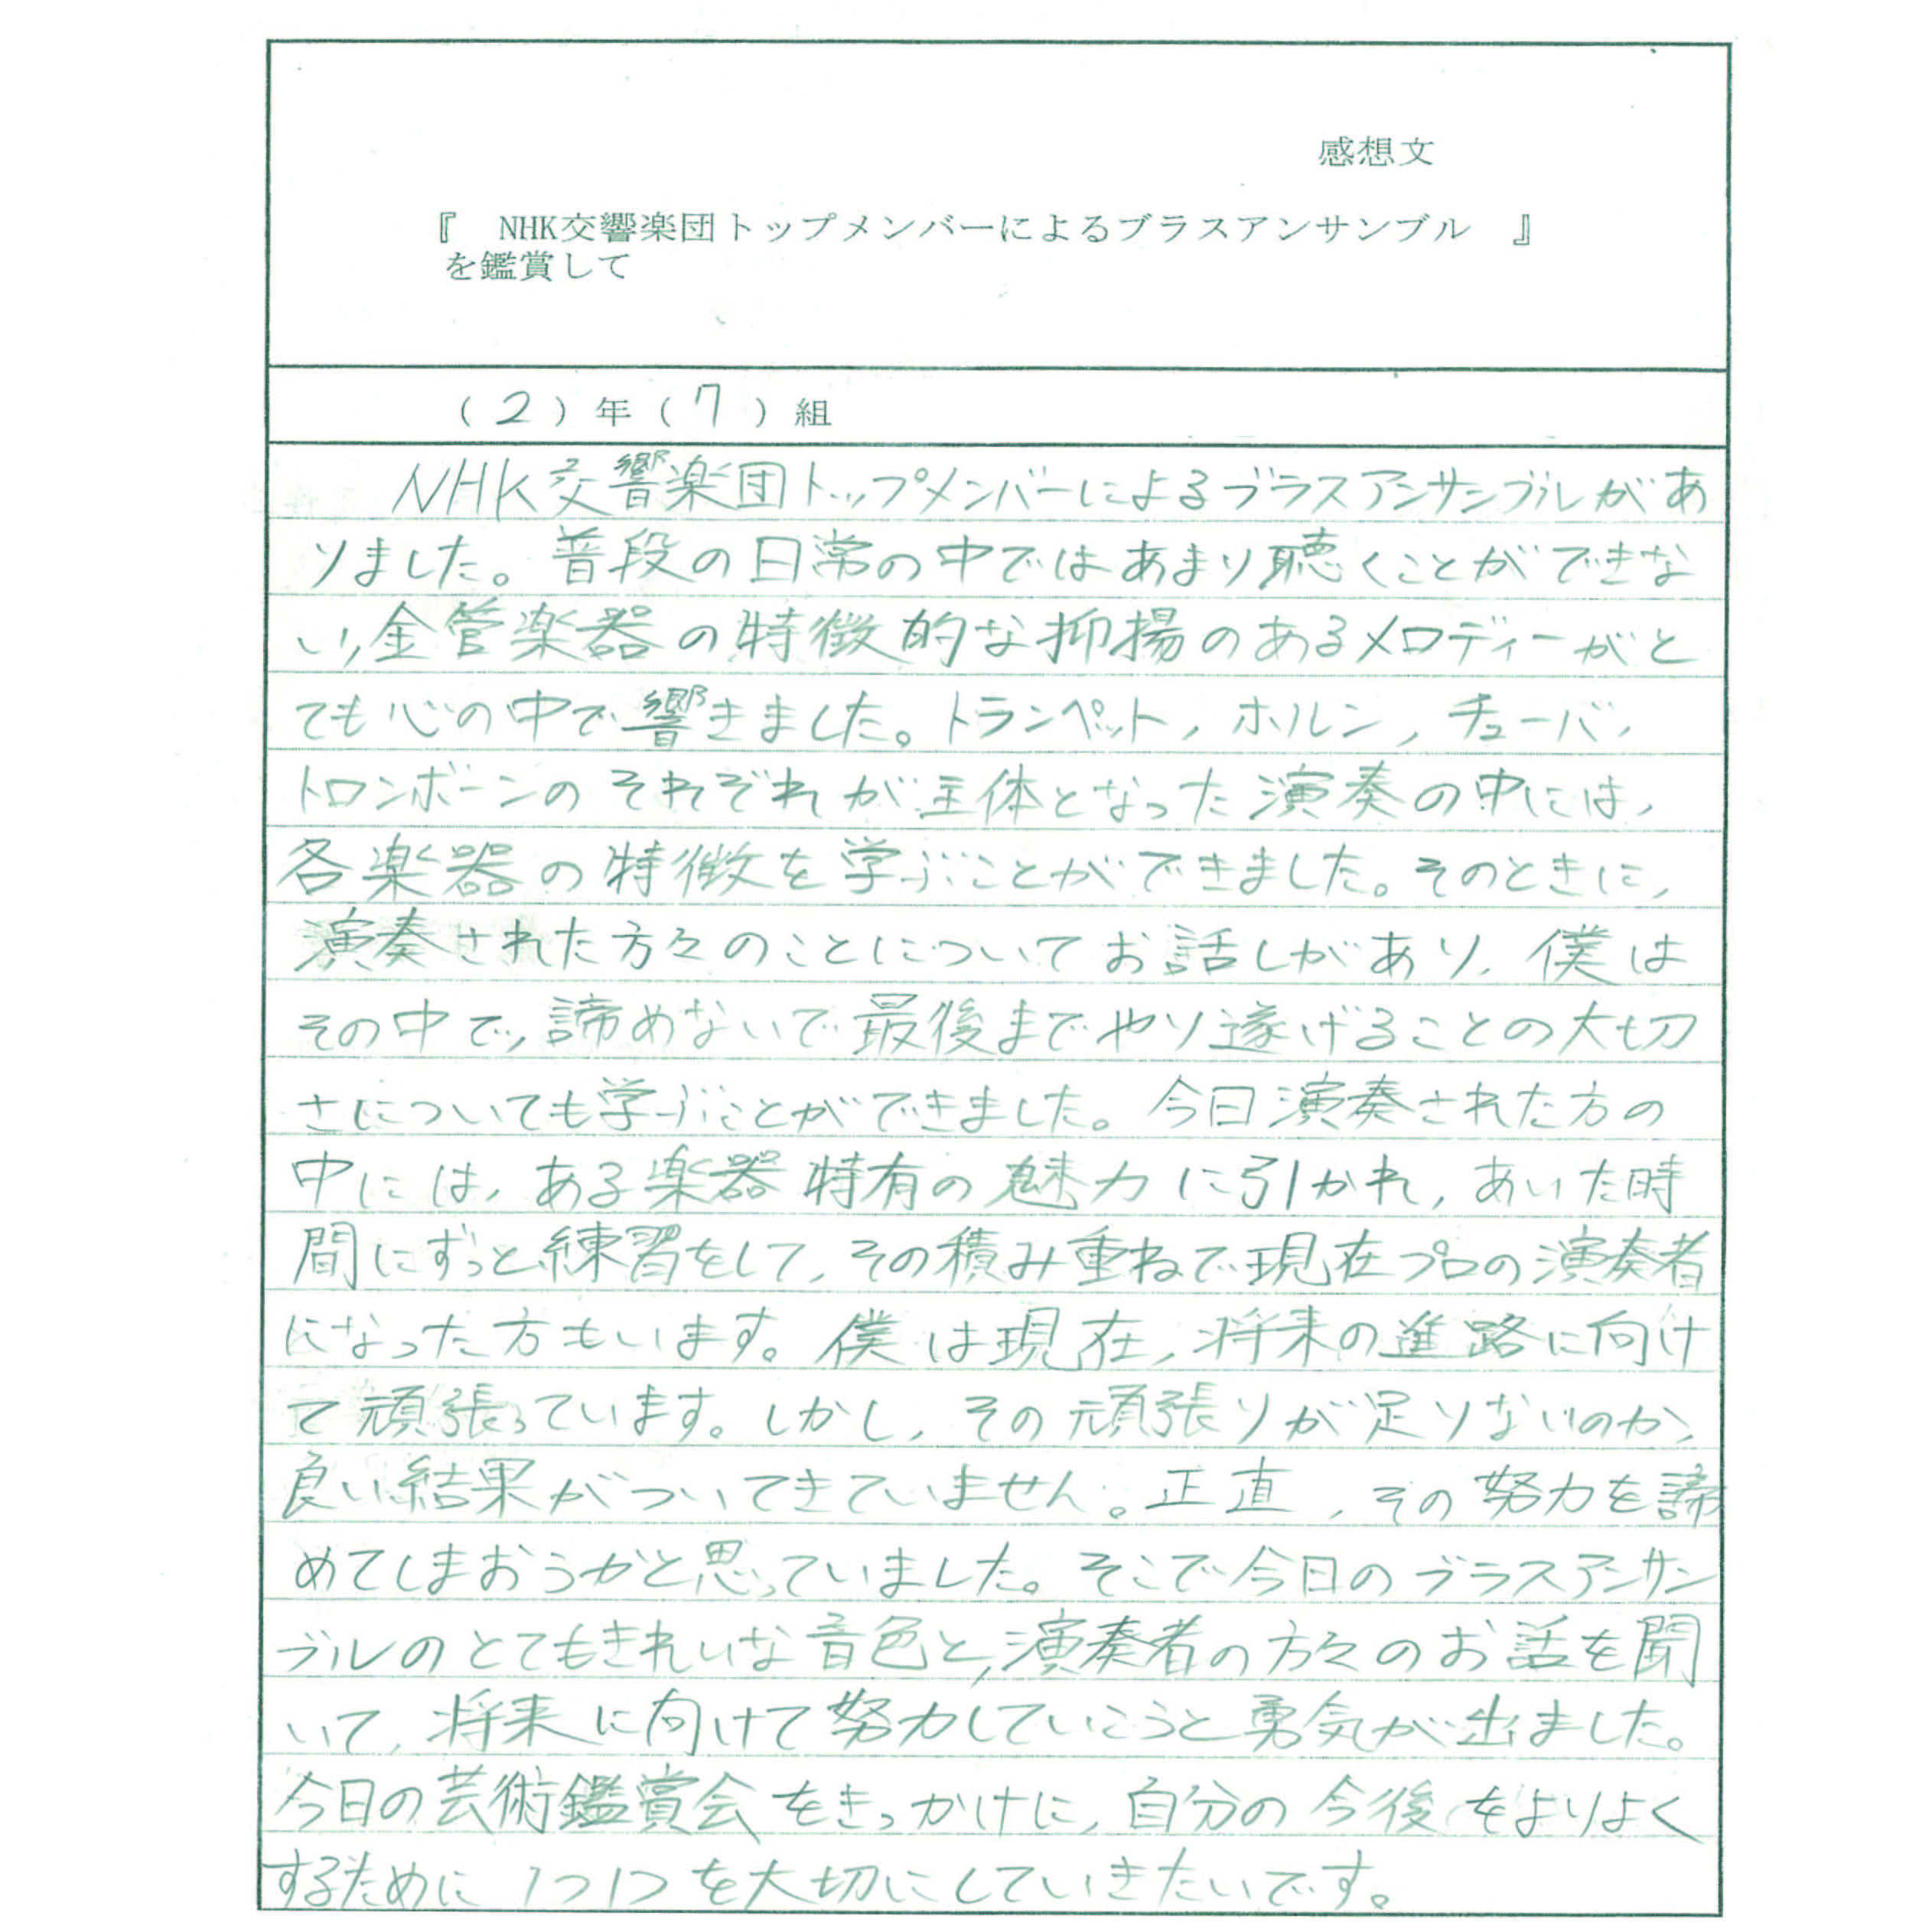 感想文
『　NHK交響楽団トップメンバーによるブラスアンサンブル　』
を鑑賞して
（2）年（7）組
NHK交響楽団トップメンバーによるブラスアンサンブルがあ
りました。普段の日常の中ではあまり聴くことができな
い,金管楽器の特徴的な抑揚のあるメロディーがと
ても心の中で響きました。トランペット,ホルン,チューバ,
トロンボーンのそれぞれが主体となった演奏の中には,
各楽器の特徴を学ぶことができました。そのときに,
演奏された方々のことについてお話しがあり,僕は
その中で,諦めないで最後までやり遂げることの大切
さについても学ぶことができました。今日演奏された方の
中には,ある楽器特有の魅力に引かれ,あいた時
間にずっと練習をして,その積み重ねで現在プロの演奏者
になった方もいます。僕は現在,将来の進路に向け
て頑張っています。しかし,その頑張りが足りないのか,
良い結果がついてきていません。正直,その努力を諦
めてしまおうかと思っていました。そこで今日のブラスアンサン
ブルのとてもきれいな音色と,演奏者の方々のお話を聞
いて,将来に向けて努力していこうと勇気が出ました。
今日の芸術鑑賞会をきっかけに,自分の今後をよりよく
するために1つ1つを大切にしていきたいです。